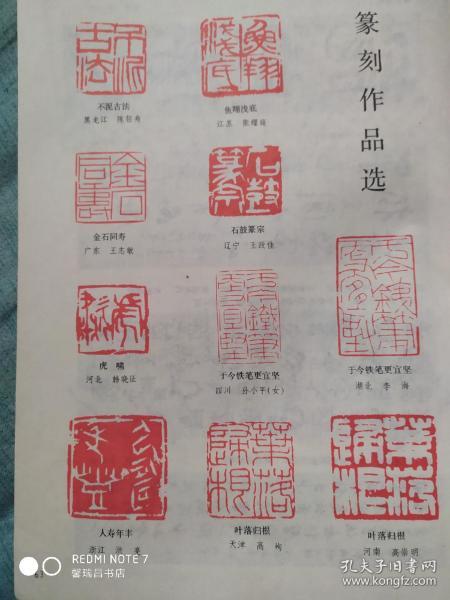 篆刻作品选
不泥古法
黑龙江
鱼翔浅底
江苏
金石同寿
广东 王志敏
石鼓篆宗
辽宁 王政佳
虎啸
河北 韩晓征
于今铁笔更宜坚
四川 孙小平(女)
于今铁笔更宜坚
湖北 李海
人寿年丰
浙江
叶落归根
天津 高
叶落归根
河南 高崇明
REDMI NOTE 7
馨瑞昌书店
孔夫子旧书网